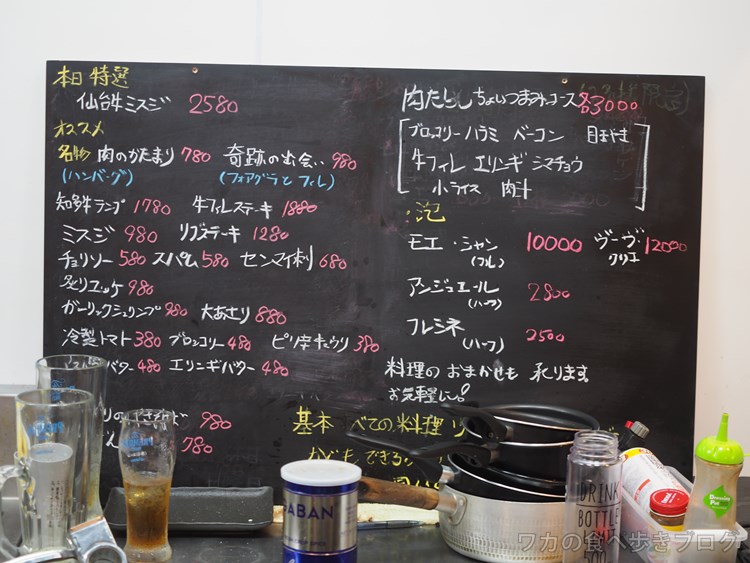 本日特選
仙台牛ミスジ 2580
オススメ
名物 肉のかたまり 780 奇跡の出会い 980
(ハンバーグ) (フォアグラとフィレ)
知多牛ランプ 1780 牛フィレステーキ 1880
ミスジ 980 リブステーキ 1280
チョリソー 580 スパム 580 センマイ刺 680
炙りユッケ 980
ガーリックシュリンプ 980 大あさり 880
冷製トマト 380 ブロッコリー 480 ピリ辛キュウリ 380
バター 480 エリンギバター 480
980
780
肉たらしちょいつまみコース 各3000
ブロッコリー ハラミ ベーコン 目玉やき
牛フィレ エリンギ シマチョウ
小ライス 肉汁
泡
モエ・シャン 10000 ヴーヴ・クリコ 12000
(フル)
アンジュエール 2800
(ハーフ)
フレシネ 2500
(ハーフ)
料理のおまかせも承ります
お気軽に!
基本 べての料理
できる
ABAN
DRINK
BOTTLE
500
ワカの食べ歩きブログ